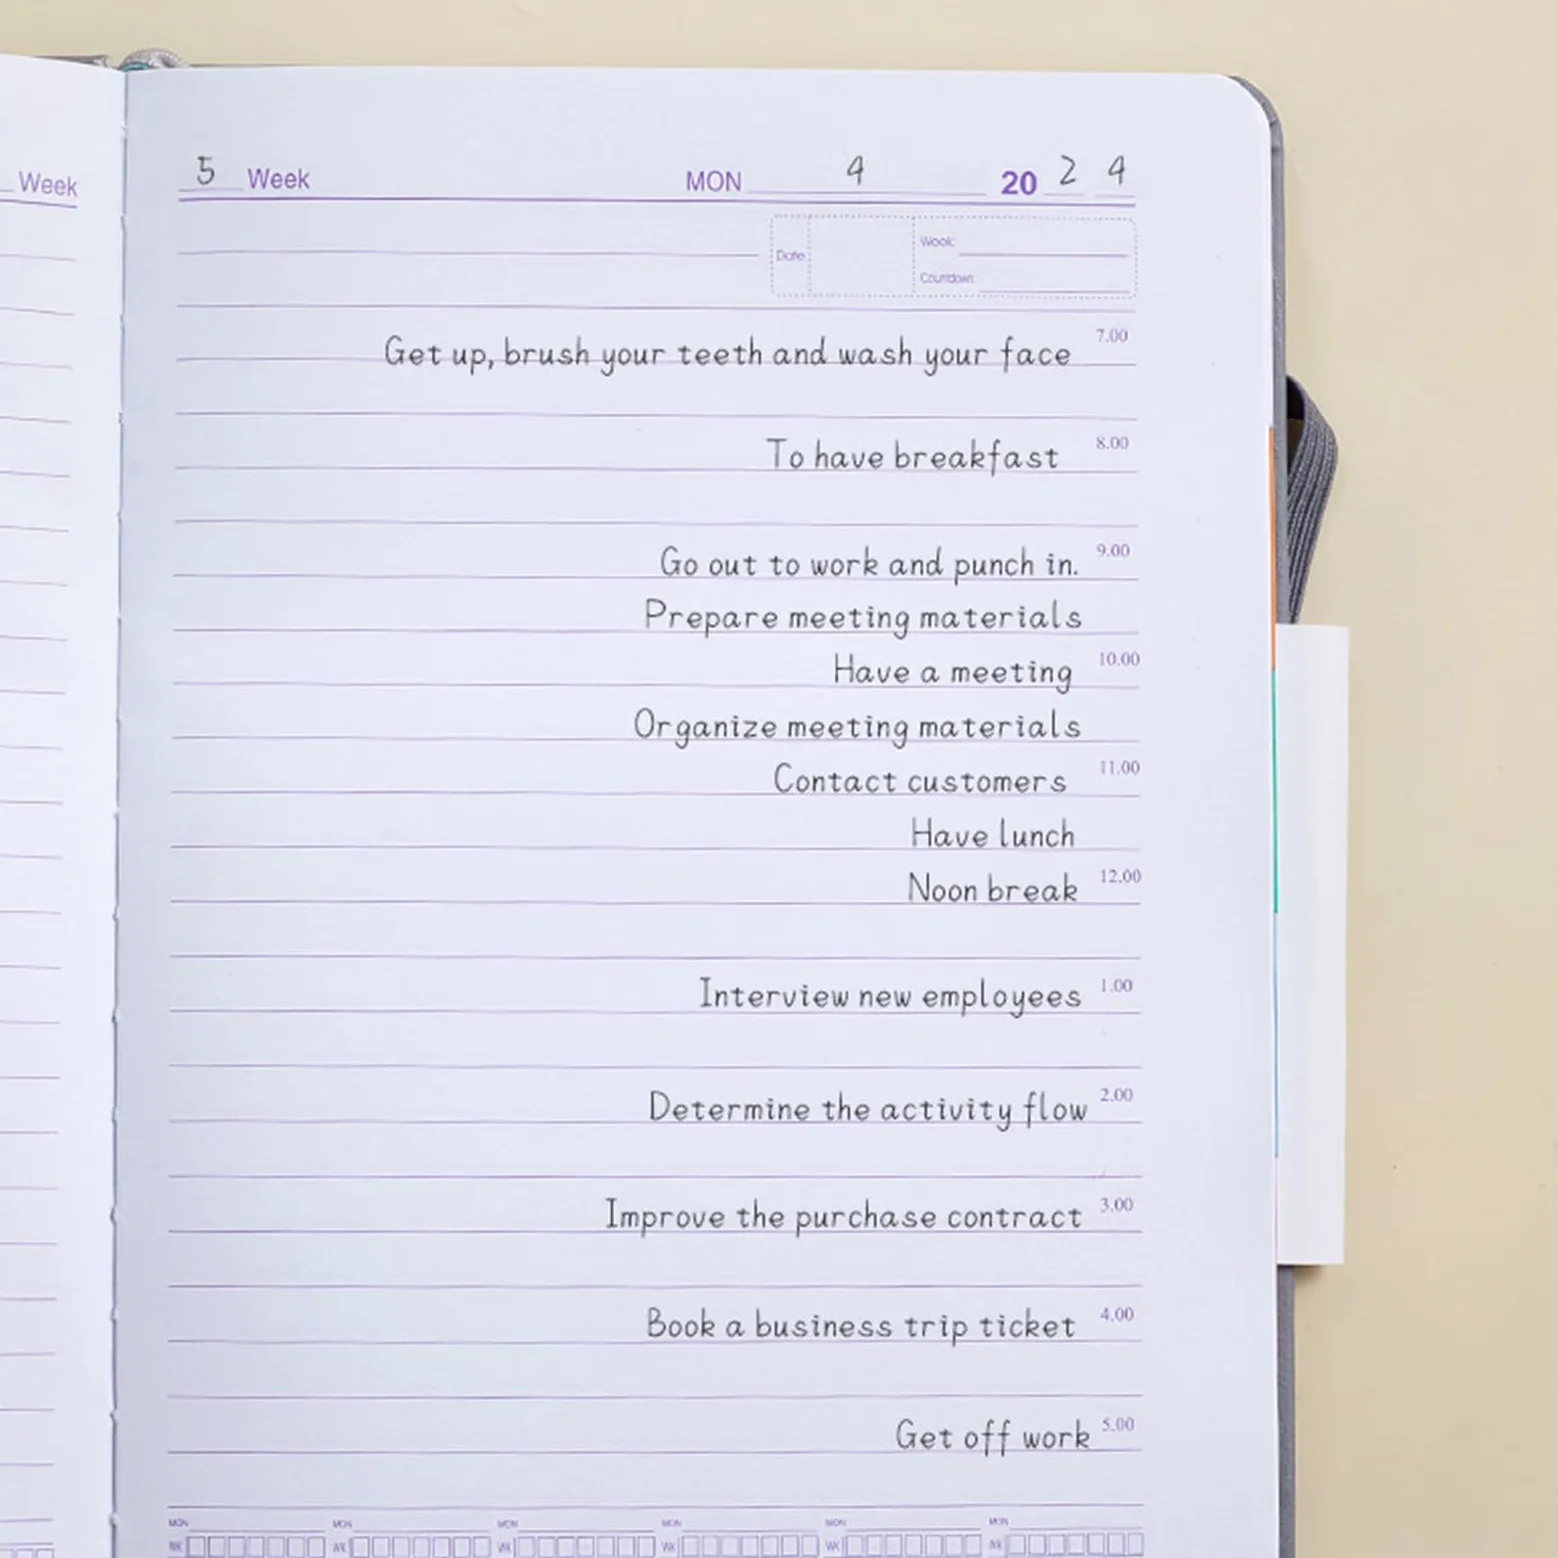 Week
5 Week MON 4 20 2 4
Date
Week:
Countdown:
7.00
Get up, brush your teeth and wash your face
8.00
To have breakfast
9.00
Go out to work and punch in.
Prepare meeting materials
10.00
Have a meeting
Organize meeting materials
11.00
Contact customers
Have lunch
12.00
Noon break
1.00
Interview new employees
2.00
Determine the activity flow
3.00
Improve the purchase contract
4.00
Book a business trip ticket
5.00
Get off work
MON MON MON MON MON MON
WK WK WK WK WK WK